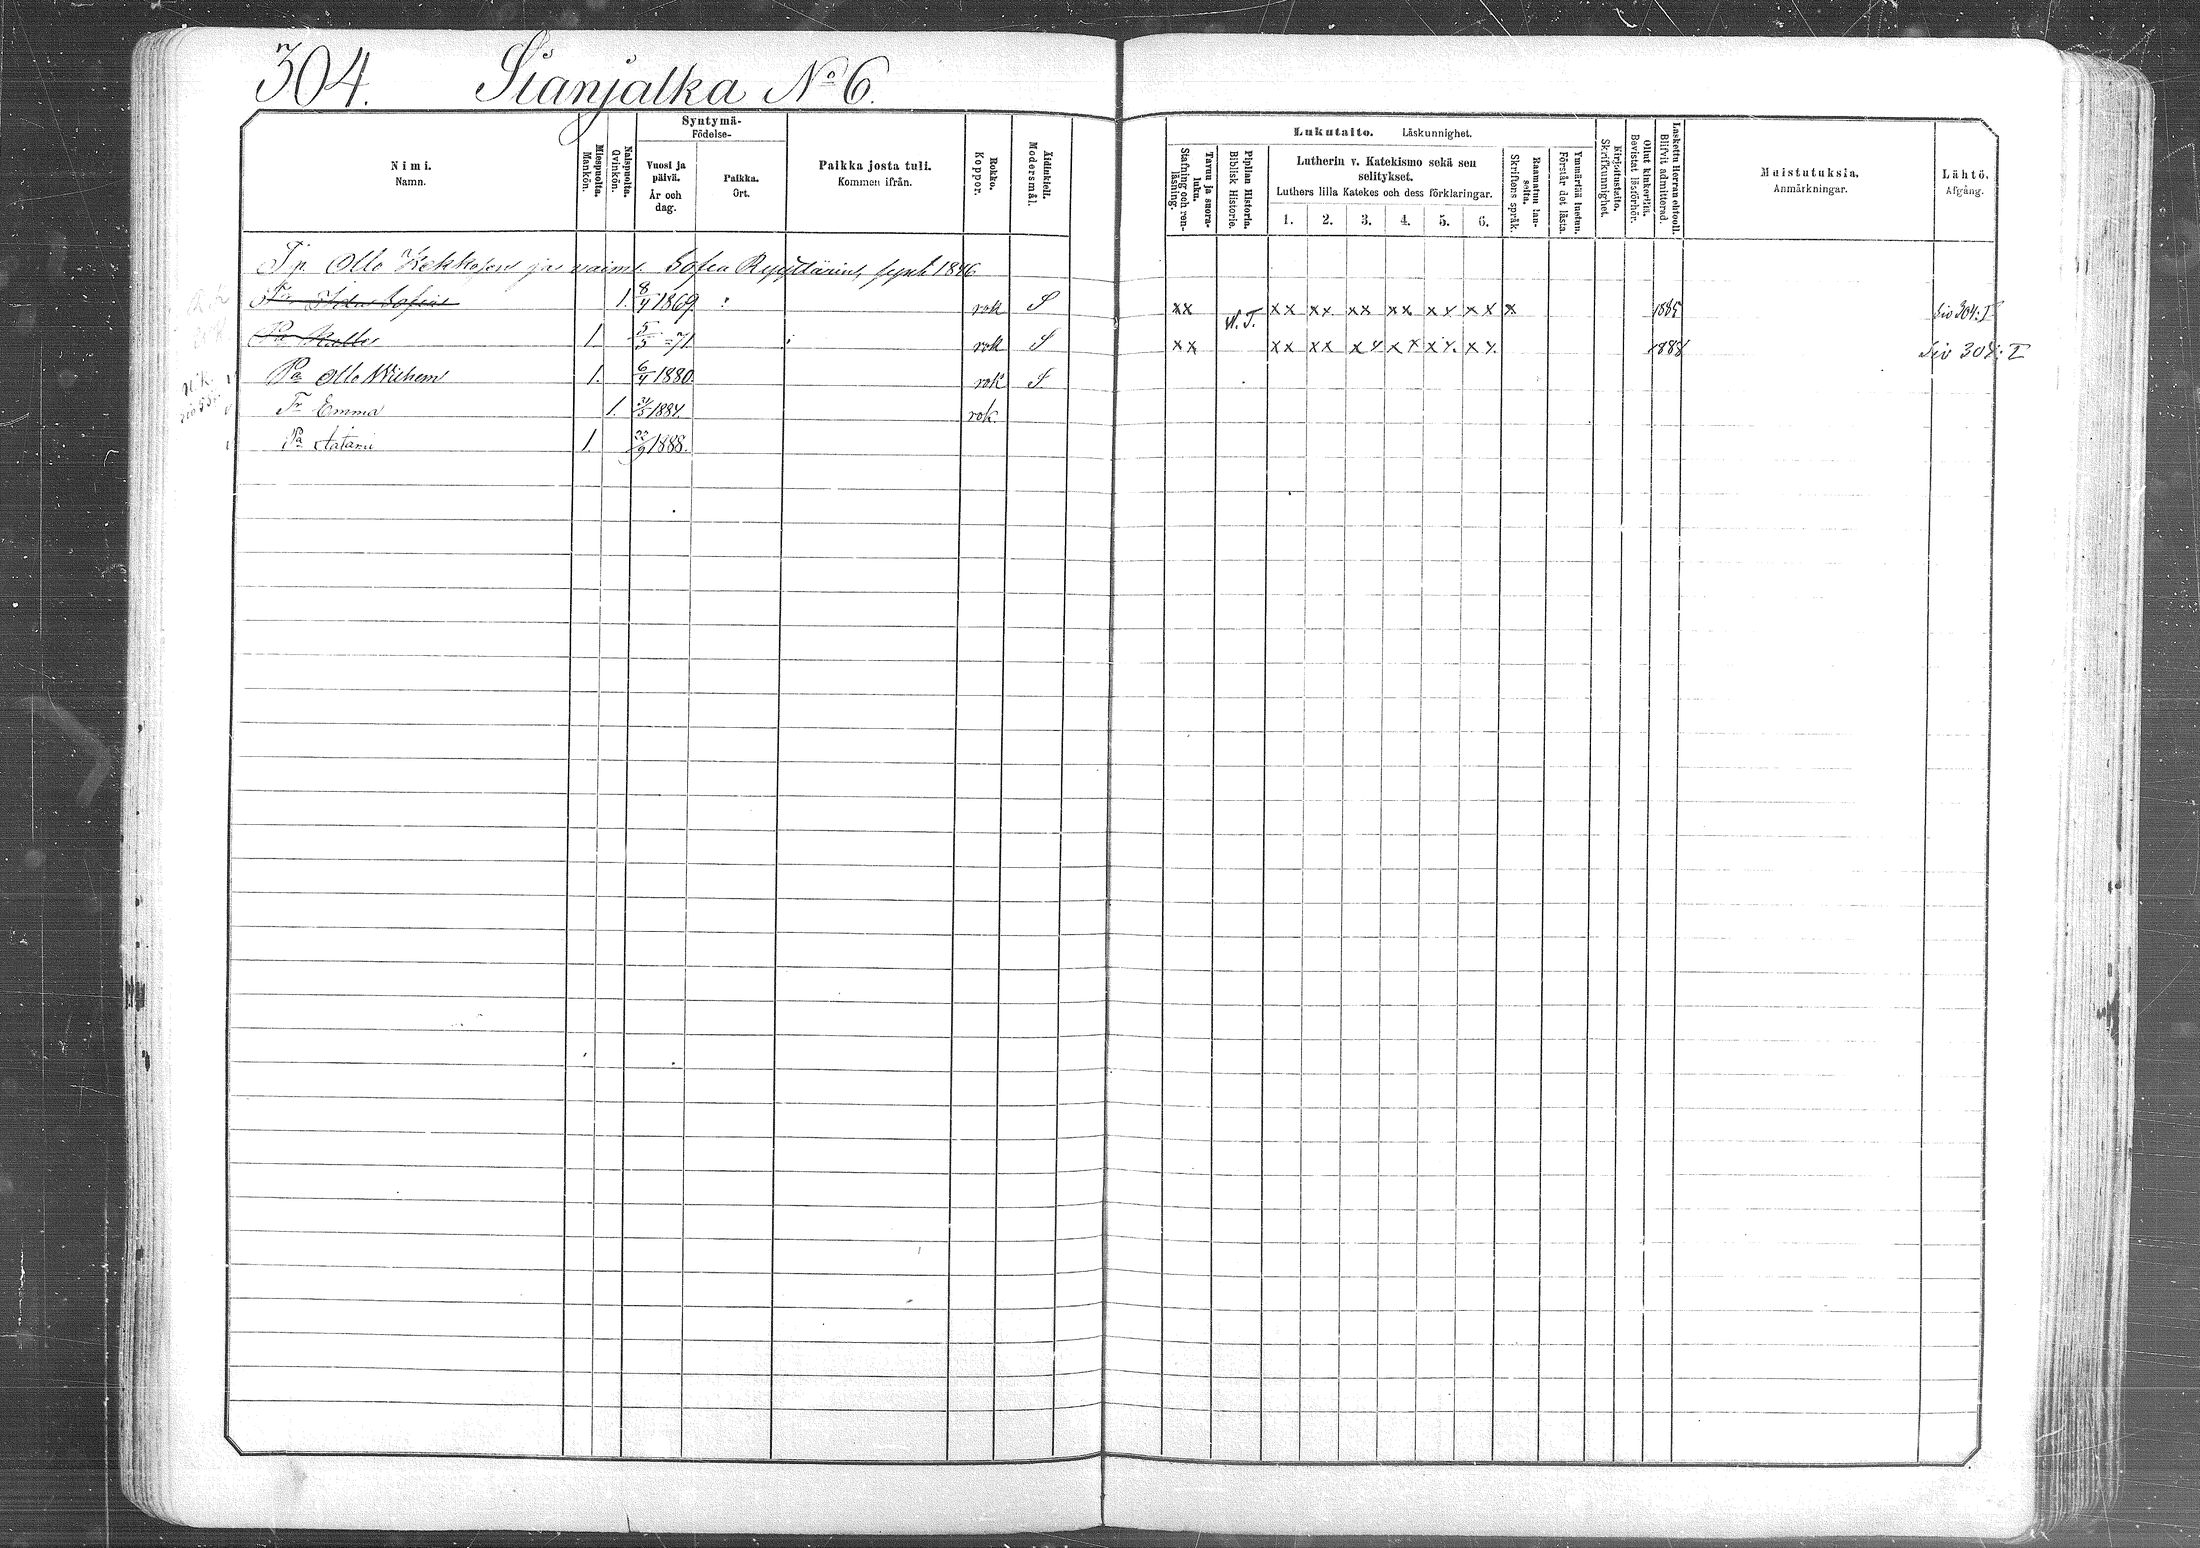 304. Sianjalka No 6.
Nimi. Namn.
Miespuolta. Mankön.
Naispuolta. Qvinkön.
Syntymä- Födelse-
Vuosi ja päivä. År och dag.
Paikka. Ort.
Paikka josta tuli. Kommen ifrån.
Rokko. Koppor.
Äidinkieli. Modersmål.
Lukutaito. Läskunnighet.
Tavuu ja suora-luku. Stafning och ren-läsning.
Piplian Historia. Biblisk Historie.
Lutherin v. Katekismo sekä sen selitykset.
Luthers lilla Katekes och dess förklaringar.
1. 2. 3. 4. 5. 6.
Raamatun lau-seita. Skriftens språk.
Ymmärtää luetun. Förstår det lästa.
Kirjoitustaito. Skrifkunnighet.
Ollut kinkerillä. Bevistat läsförhör.
Laskettu Herran ehtooll. Blifvit admitterad.
Muistutuksia. Anmärkningar.
Lähtö. Afgång.
Tp. Otto Kekkosen ja vaim. Sofea synt 1846
Tr 1. 8/4 1869. rok S xx xx xx xx xx xx xx x 1885 siv 304: I
Pa Kalle 1. 5/5 -71. rok S xx N.T. xx xx xx xx xx xx 1888 siv 304: I
Pa Otto Wilhem 1. 6/4 1880. rok S.
Tr Emma 1. 1884. rok.
Pa Aatami 1. 22/9 1888.